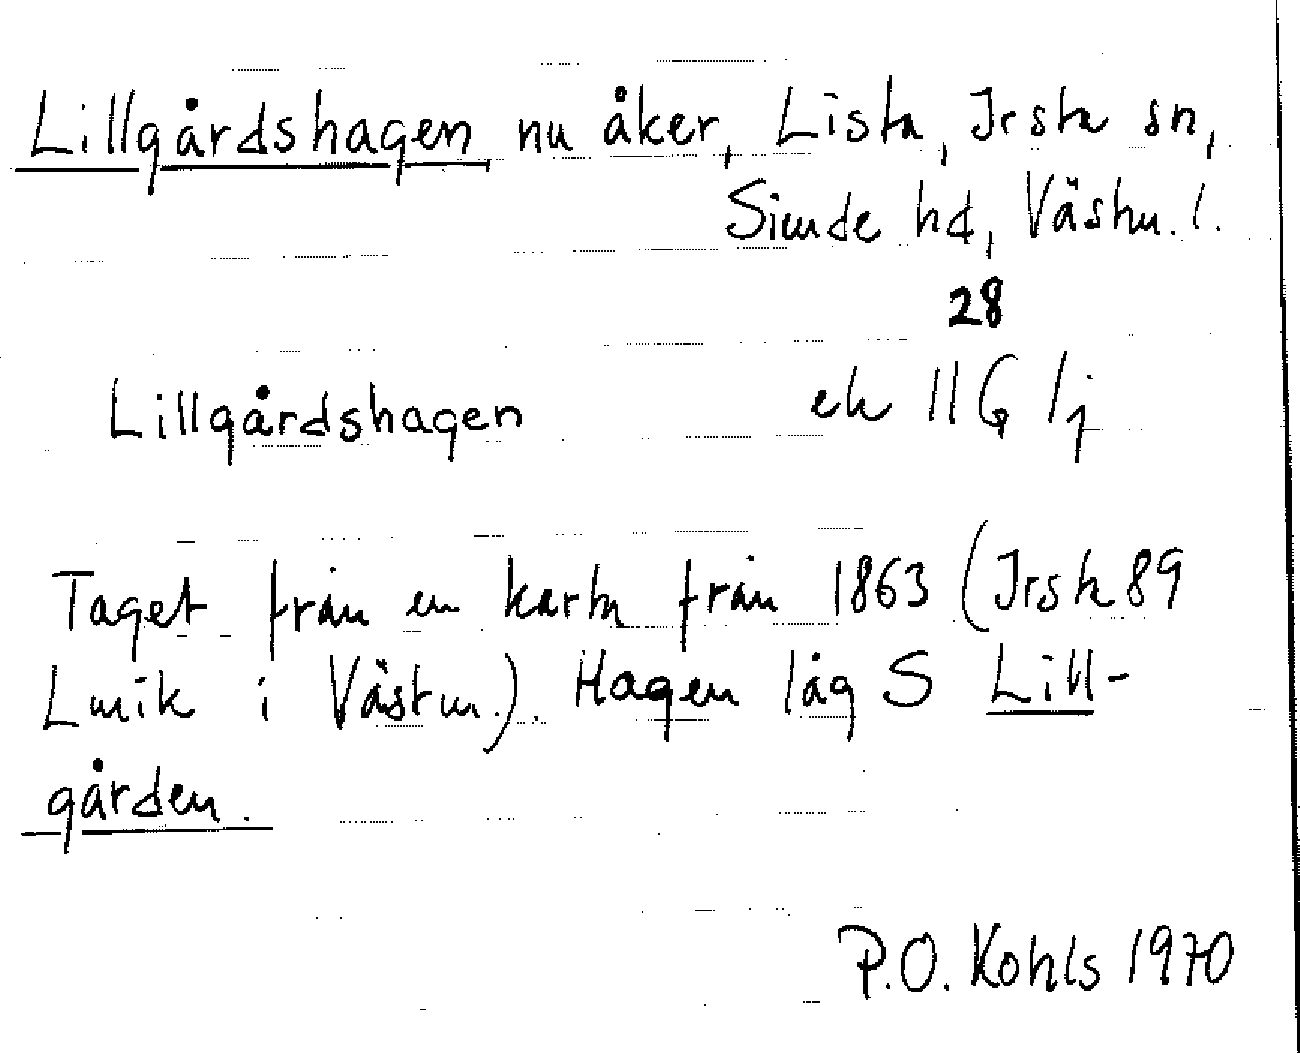 Lillgårdshagen nu åker, Lista, Irsta sn,
Siende hd, Västm. l.
28
Lillgårdshagen ek 11G 1j
Taget från en karta från 1863 (Irsta 89
Lmik i Västm.). Hagen låg S Lill-
gården.
P.O. Kohls 1970